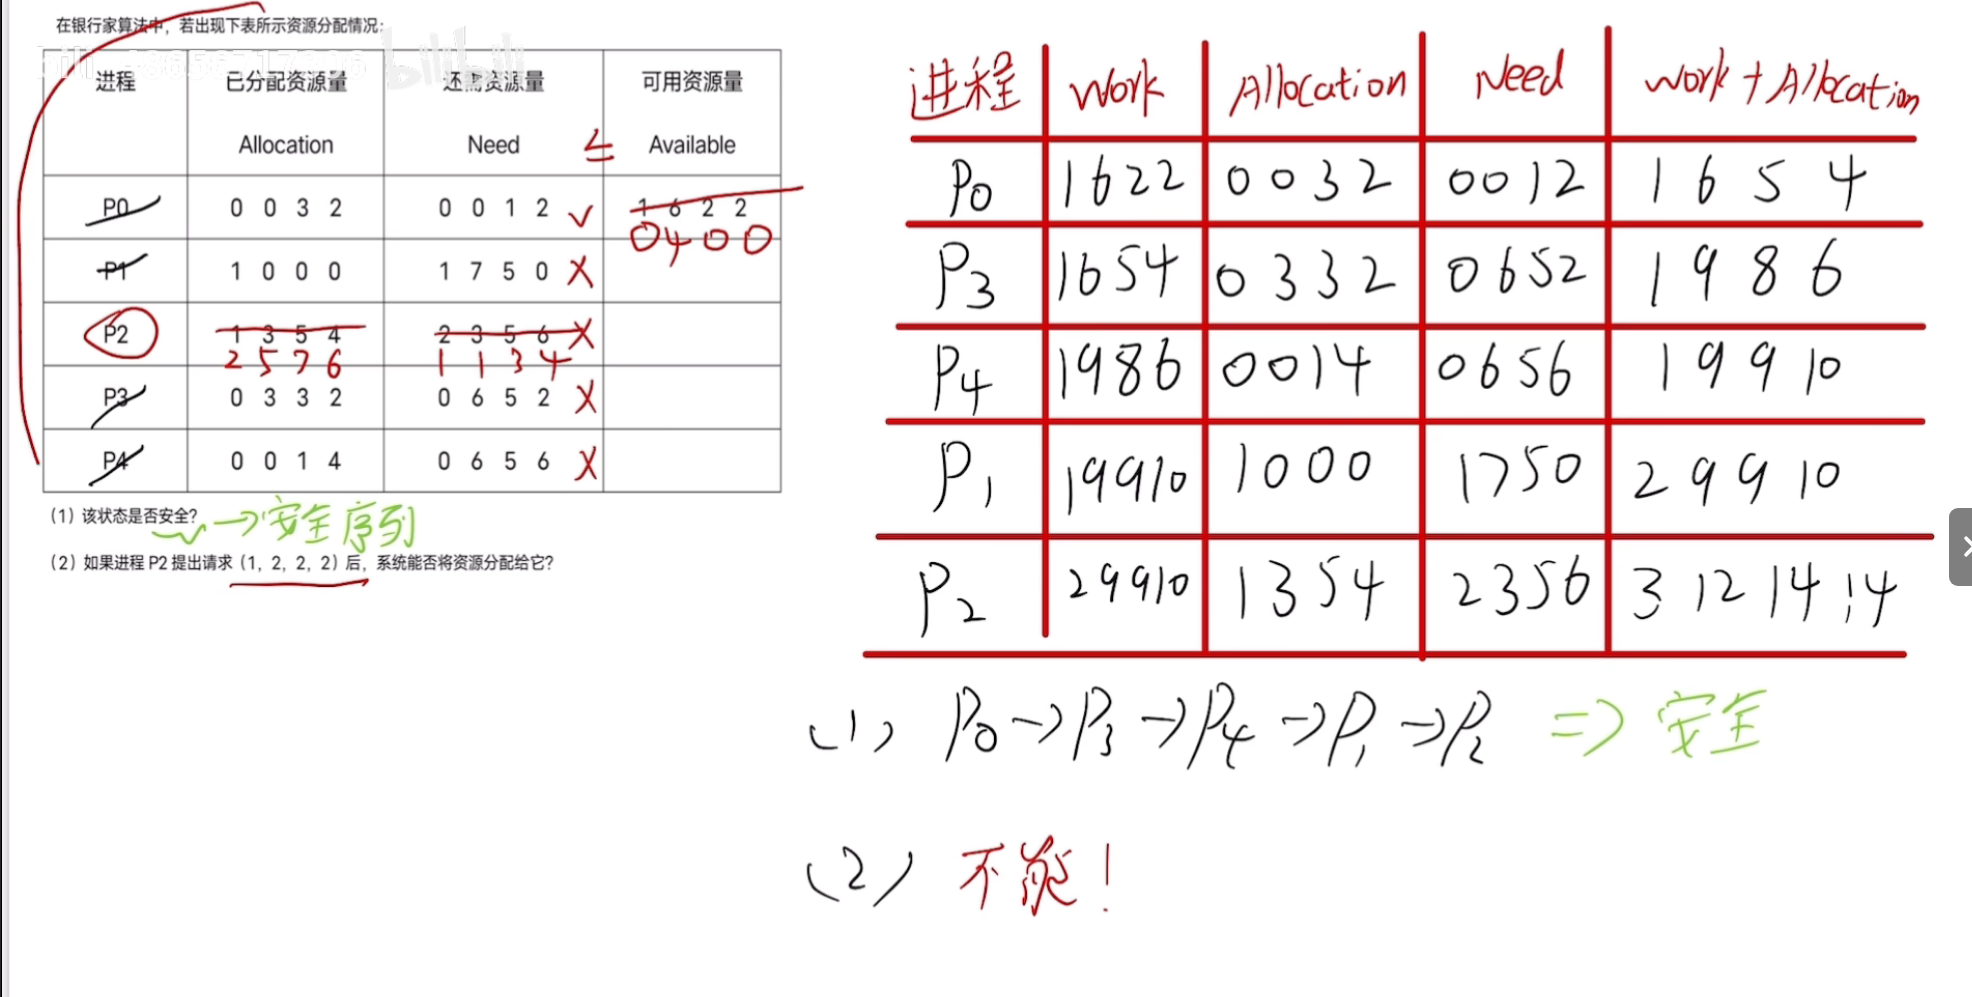 在银行家算法中，若出现下表所示资源分配情况：
bilibili
进程 已分配资源量 还需资源量 可用资源量
Allocation Need ≤ Available
P0 0 0 3 2 0 0 1 2 √ 1 6 2 2
0 4 0 0
P1 1 0 0 0 1 7 5 0 X
P2 1 3 5 4 2 3 5 6 X
2 5 7 6 1 1 3 4
P3 0 3 3 2 0 6 5 2 X
P4 0 0 1 4 0 6 5 6 X
（1）该状态是否安全？ →安全序列
（2）如果进程 P2 提出请求（1，2，2，2）后，系统能否将资源分配给它？
进程 Work Allocation Need Work+Allocation
P0 1622 0032 0012 1 6 5 4
P3 1654 0332 0652 1 9 8 6
P4 1986 0014 0656 1 9 9 10
P1 19910 1000 1750 2 9 9 10
P2 29910 1354 2356 3 12 14 14
(1) P0→P3→P4→P1→P2 ⇒ 安全
(2) 不能！